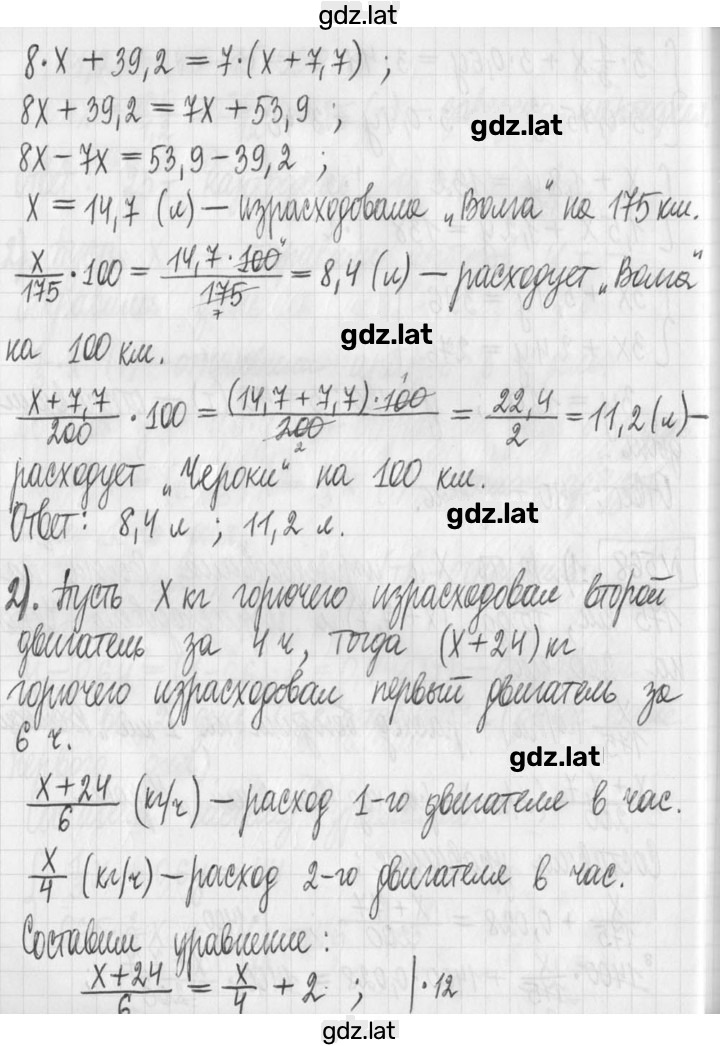 gdz.lat
8·x + 39,2 = 7·(x + 7,7) ;
8x + 39,2 = 7x + 53,9 ;
gdz.lat
8x - 7x = 53,9 - 39,2 ;
x = 14,7 (л) – израсходовала „Волга“ на 175 км.
x/175 · 100 = 14,7 · 100/175 = 8,4 (л) – расходует „Волга“
gdz.lat
на 100 км.
x + 7,7/200 · 100 = (14,7 + 7,7) · 100/200 = 22,4/2 = 11,2 (л) –
расходует „Чероки“ на 100 км.
gdz.lat
Ответ: 8,4 л ; 11,2 л.
2). Пусть x кг горючего израсходовал второй
двигатель за 4 ч, тогда (x + 24) кг
горючего израсходовал первый двигатель за
6 ч.
gdz.lat
x + 24/6 (кг/ч) – расход 1-го двигателя в час.
x/4 (кг/ч) – расход 2-го двигателя в час.
Составим уравнение:
x + 24/6 = x/4 + 2 ; | · 12
gdz.lat